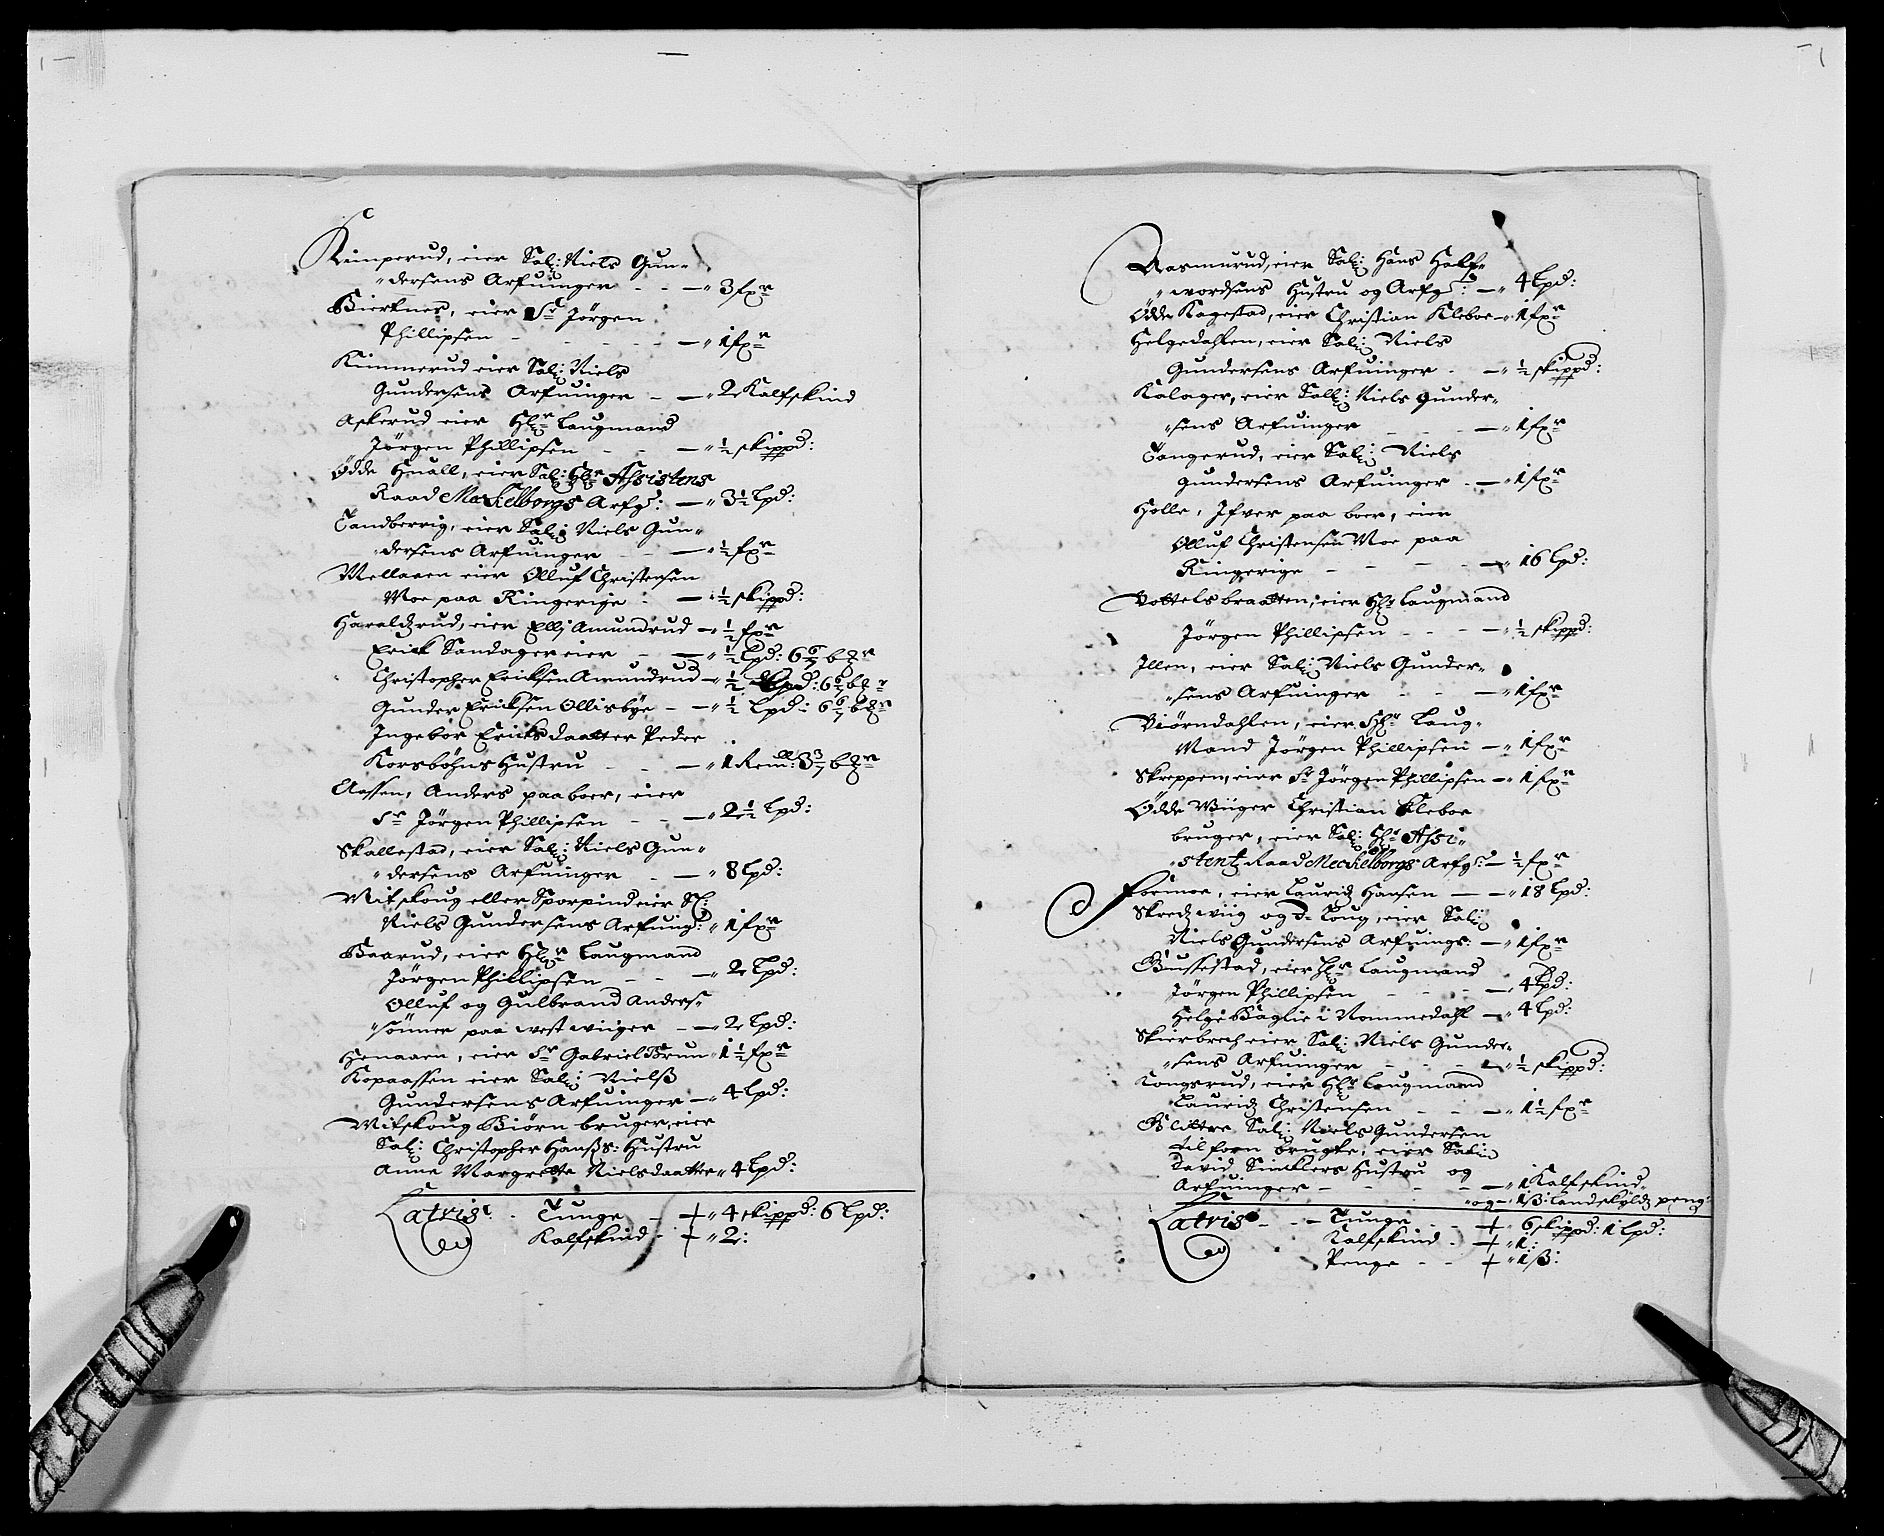 Kimperud, eier Sal: Niels Gun-
dersens Arfuinger - - — 3 fxr
Bierknes, eier Sr Jörgen
Phillipsen - - - — 1 fxr
Kimmerud eier Sal: Niels
Gundersens Arfuinger - — 2 Kalfskind
Askerud eier Hr Laugmand
Jörgen Phillipsen - - — ½ skippd:
Ödde Huall, eier Sal: Hr Assistens
Raad Meckelborgs Arfg: — 3½ Lpd:
Sandberrig, eier Sal: Niels Gun-
dersens Arfuinger - - — ½ fxr
Mellaaen eier Olluf Christensen
Moe paa Ringerige - — ½ skippd:
Haraldzrud, eier Ellj Amundrud — ½ fxr
Erick Sandager eier - — ½ Lpd: 6 6/7 bzr
Christopher Ericksen Amundrud — ½ Lpd: 6 6/7 bzr
Gunder Ericksen Ollisbye - — ½ Lpd: 6 6/7 bzr
Ingebor Ericksdaatter Peder
Korsböhns Hustru - - — 1 Remll: 3 3/7 bzr
Aassen, Anders paaboer, eier
Sr Jörgen Phillipsen - - — 2½ Lpd:
Skallestad, eier Sal: Niels Gun-
dersens Arfuinger - — 8 Lpd:
Mitskoug eller Sporpind eier Sl:
Niels Gundersens Arfuing: 1 fxr
Baarud, eier Hr Laugmand
Jörgen Phillipsen - - — 2 Lpd:
Olluf og Gulbrand Anders-
sönner paa westwiiger - — 2 Lpd:
Henaaen, eier Sr Gabriel Brun 1½ fxr
Kopaassen eier Sal: Nielß
Gundersens Arfuinger — 4 Lpd:
Mitskoug Biörn bruger, eier
Sal: Christopher Hanßs: Hustru
Anne Margrette Nielsdaatter 4 Lpd:
Latris - Tunge - + 4 skippd: 6 Lpd:
Kalfskind - + 2:
Aasmurud, eier Sal: Hans Half-
wordsens Hustru og Arfg: — 4 Lpd:
Ödde Ragestad, eier Christian Kleboe — 1 fxr
Helgedahlen, eier Sal: Niels
Gundersens Arfuinger - — ½ skippd:
Kalager, eier Sall: Niels Gunder-
sens Arfuinger - - — 1 fxr
Tangerud, eier Sal: Niels
Gundersens Arfuinger - — 1 fxr
Holle, Ifver paa boer, eier
Olluf Christensen Moe paa
Ringerige - - - — 16 Lpd:
Bottelsbraatten, eier Hr Laugmand
Jörgen Phillipsen - - - — ½ skippd:
Illen, eier Sal: Niels Gunder-
sens Arfuinger - - — 1 fxr
Biörndahlen, eier Hr Laug-
Mand Jörgen Phillipsen — 1 fxr
Skreppen, eier Sr Jörgen Phillipsen — 1 fxr
Ödde Wiiger Christian Kleboe
bruger, eier Sal: Hr Assi-
stentz Raad Meckelborgs Arfg: — ½ fxr
Formoe, eier Lauridz Hansen — — 18 Lpd:
Skredzwiig og Toug, eier Sal:
Niels Gundersens Arfuings: — 1 fxr
Gussestad, eier Hr Laugmand
Jörgen Phillipsen - - - — 4 Lpd:
Helge Baglie i Nommedahl — 4 Lpd:
Skierbrech eier Sal: Niels Gunder-
sens Arfuinger - - - — ½ skippd:
Kongsrud, eier Hr Laugmand
Lauridz Christensen - - — 1½ fxr
Glittre Sal: Niels Gundersen
tilforn brugte, eier Sal:
David Sinklers Hustru og
Arfuinger - - - - — 1 Kalfskind
og — 1 ß: landskyldz peng:
Latris - - - Tunge - - + 6 skippd: 1 Lpd:
Kalfskind - + 1:
Penge - - + 1 ß: